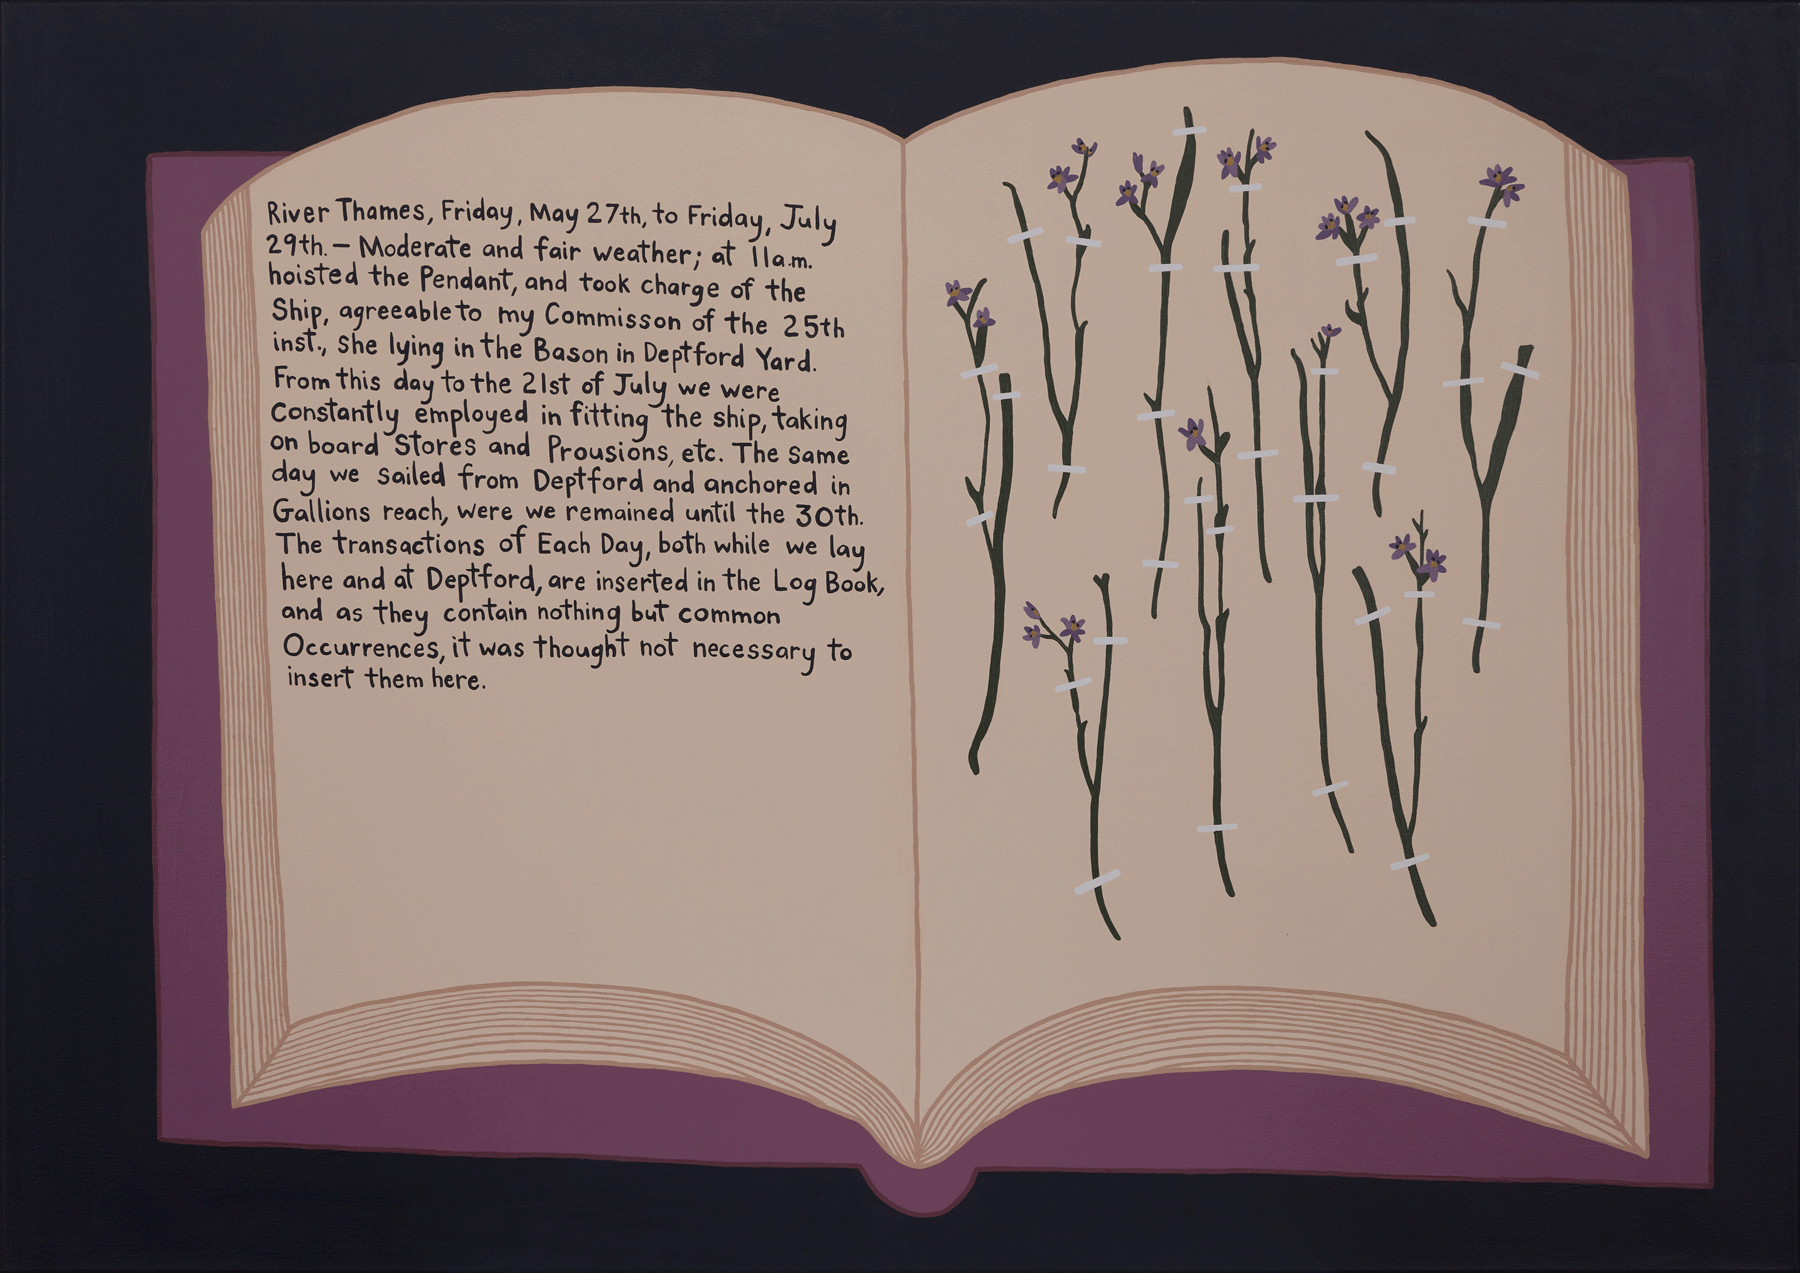 River Thames, Friday, May 27th, to Friday, July
29th. — Moderate and fair weather; at 11a.m.
hoisted the Pendant, and took charge of the
Ship, agreeable to my Commisson of the 25th
inst., she lying in the Bason in Deptford Yard.
From this day to the 21st of July we were
Constantly employed in fitting the ship, taking
on board Stores and Prousions, etc. The same
day we sailed from Deptford and anchored in
Gallions reach, were we remained until the 30th.
The transactions of Each Day, both while we lay
here and at Deptford, are inserted in the Log Book,
and as they contain nothing but common
Occurrences, it was thought not necessary to
insert them here.